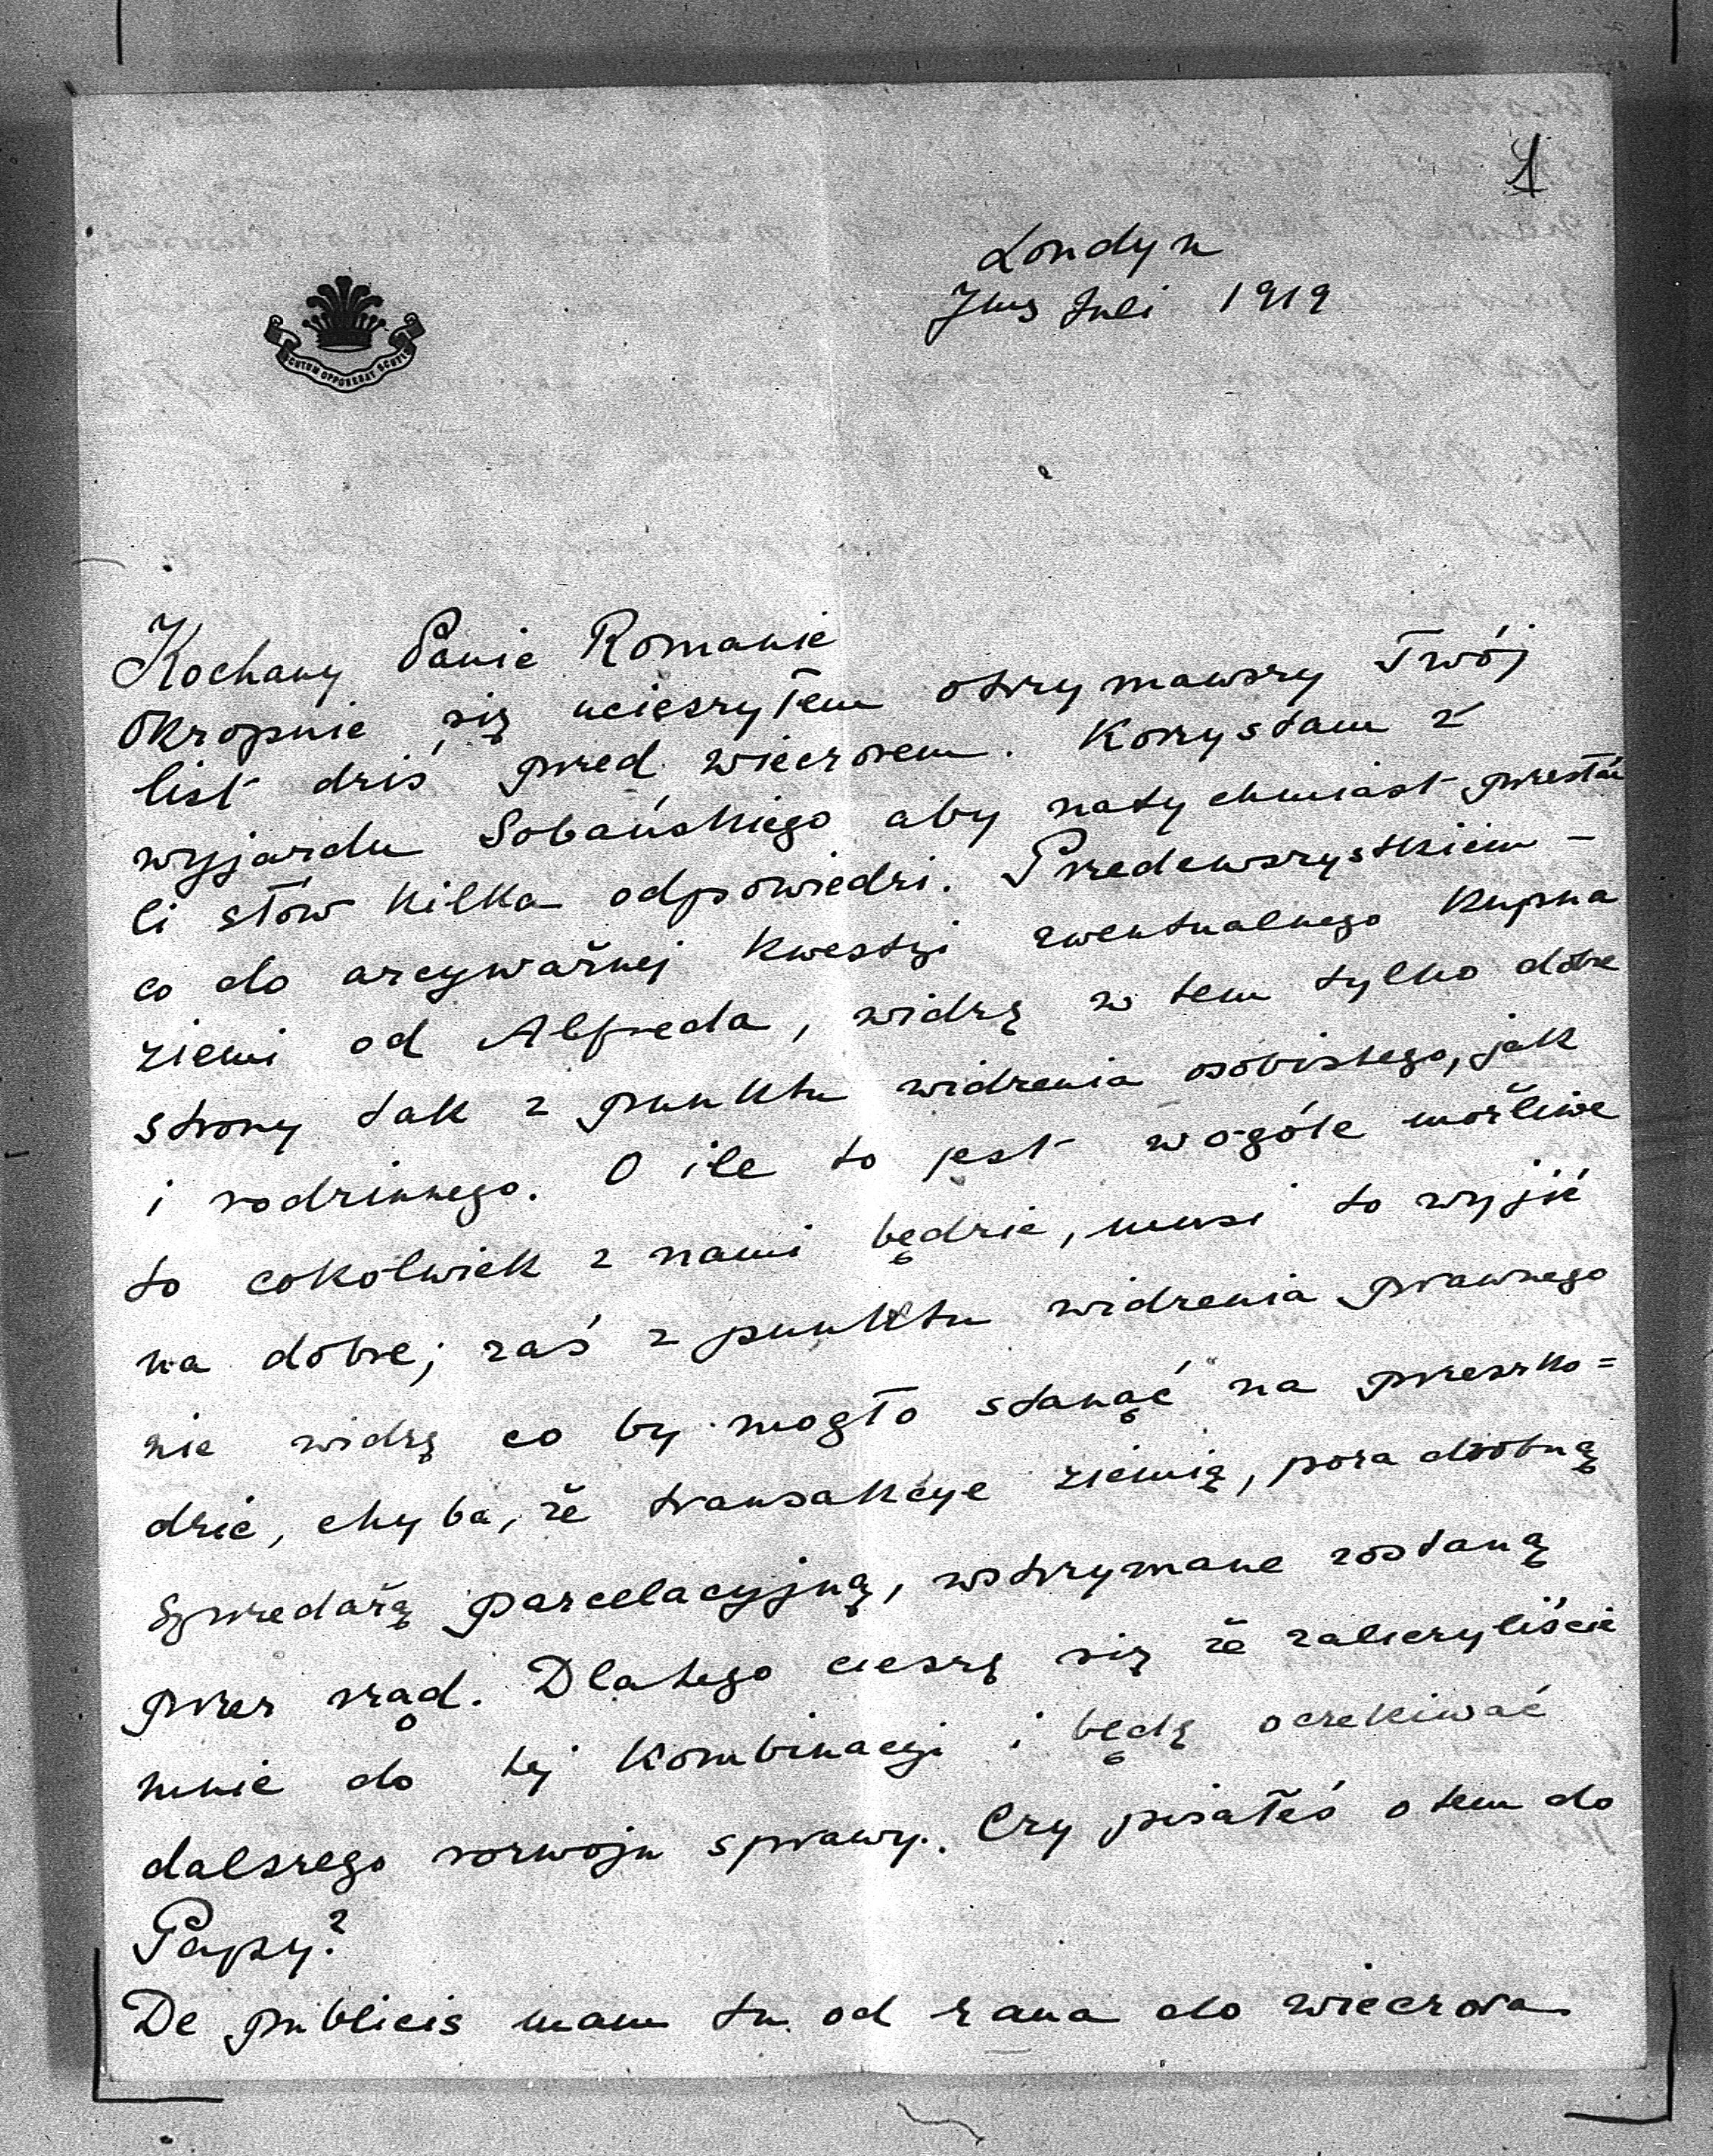 1
Londyn
7my Juli 1919
SCUTUM OPPONEBAT SCUTIS
Kochany Panie Romanie
Okropnie się ucieszyłem otrzymawszy Twój
list dziś przed wieczorem. Korzystam z
wyjazdu Sobańskiego aby natychmiast przesłać
Ci słów kilka odpowiedzi. Przedewszystkiem –
co do arcyważnej kwestyi ewentualnego kupna
ziemi od Alfreda, widzę w tem tylko dobre
strony tak z punktu widzenia osobistego, jak
i rodzinnego. O ile to jest wogóle możliwe
to cokolwiek z nami będzie, musi to wyjść
na dobre; zaś z punktu widzenia prawnego
nie widzę co by mogło stanąć na przeszko=
dzie, chyba, że transakcye ziemią, poza drobną
sprzedażą parcelacyjną, wstrzymane zostaną
przez rząd. Dlatego cieszę się że zaliczyliście
mnie do tej kombinacyi i będę oczekiwać
dalszego rozwoju sprawy. Czy pisałeś o tem do
Papy?
De publicis mam tu od rana do wieczora